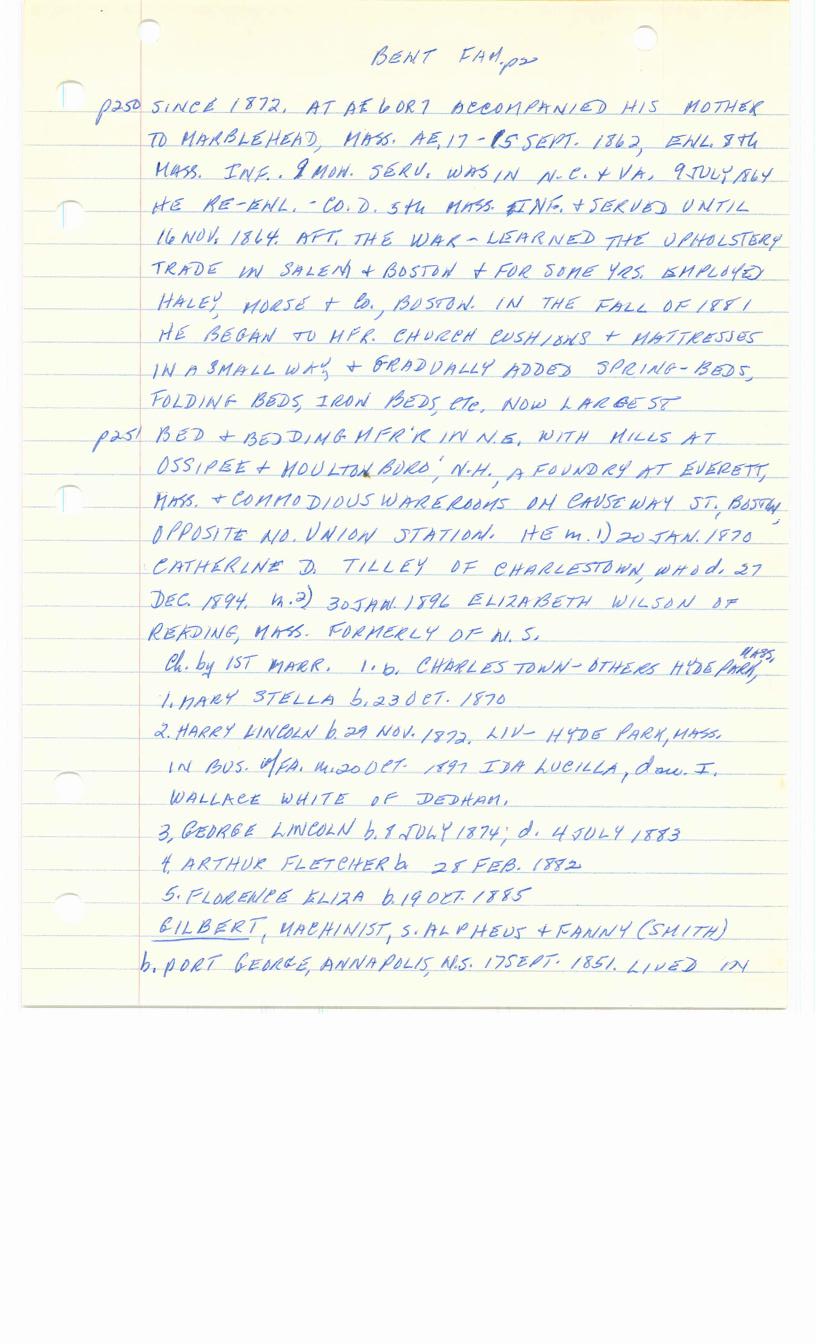 BENT FAM. p2
p250 SINCE 1872. AT AE 6 OR 7 ACCOMPANIED HIS MOTHER
TO MARBLEHEAD, MASS. AE, 17 - 15 SEPT. 1862, ENL. 8th
MASS. INF. 9 MON. SERV. WAS IN N.C. + VA. 9 JULY, 1864
HE RE-ENL. - CO. D. 5th MASS. INF. + SERVED UNTIL
16 NOV. 1864. AFT. THE WAR - LEARNED THE UPHOLSTERY
TRADE IN SALEM + BOSTON + FOR SOME YRS. EMPLOYED
HALEY, MORSE + Co., BOSTON. IN THE FALL OF 1881
HE BEGAN TO MFR. CHURCH CUSHIONS + MATTRESSES
IN A SMALL WAY, + GRADUALLY ADDED SPRING-BEDS,
FOLDING BEDS, IRON BEDS, etc. NOW LARGEST
p251 BED + BEDDING MFR'R IN N.E. WITH MILLS AT
OSSIPEE + MOULTONBORO', N.H., A FOUNDRY AT EVERETT,
MASS. + COMMODIOUS WAREROOMS ON CAUSEWAY ST., BOSTON,
OPPOSITE NO. UNION STATION. HE m. 1) 20 JAN. 1870
CATHERINE D. TILLEY OF CHARLESTOWN, WHO d. 27
DEC. 1894. m. 2) 30 JAN. 1896 ELIZABETH WILSON OF
READING, MASS. FORMERLY OF N.S.
Ch. by 1ST MARR. 1. b. CHARLESTOWN - OTHERS HYDE PARK, MASS.
1. MARY STELLA b. 23 OCT. 1870
2. HARRY LINCOLN b. 29 NOV. 1872. LIV- HYDE PARK, MASS.
IN BUS. w/FA. m. 20 OCT. 1897 IDA LUCILLA, dau. I.
WALLACE WHITE OF DEDHAM.
3, GEORGE LINCOLN b. 8 JULY 1874; d. 4 JULY 1883
4. ARTHUR FLETCHER b. 28 FEB. 1882
5. FLORENCE ELIZA b. 19 OCT. 1885
GILBERT, MACHINIST, S. ALPHEUS + FANNY (SMITH)
b. PORT GEORGE, ANNAPOLIS, N.S. 17 SEPT. 1851. LIVED IN